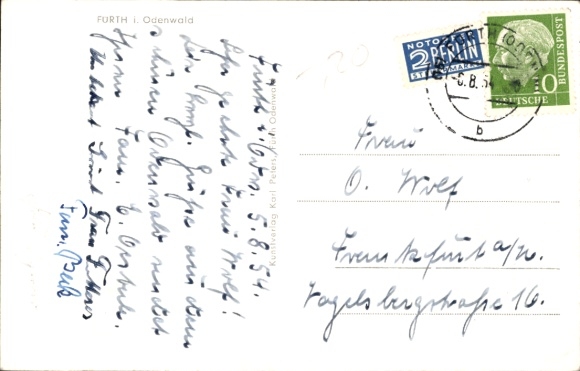 FÜRTH i. Odenwald
Fürth i. Odw. 5.8.54.
Sehr geehrte Frau Wolf!
Die herzl. Grüße aus dem
schönen Odenwald sendet
Ihnen Fam.
Frau
Fam.
Kunstverlag Karl Peters, Fürth Odenwald
NOTOPFER
2 BERLIN
STEUERMARKE
FÜRTH (ODENW)
-6.8.54
b
DEUTSCHE BUNDESPOST
10
Frau
O. Wolf
Frankfurt a/M.
Vogelsbergstraße 16.